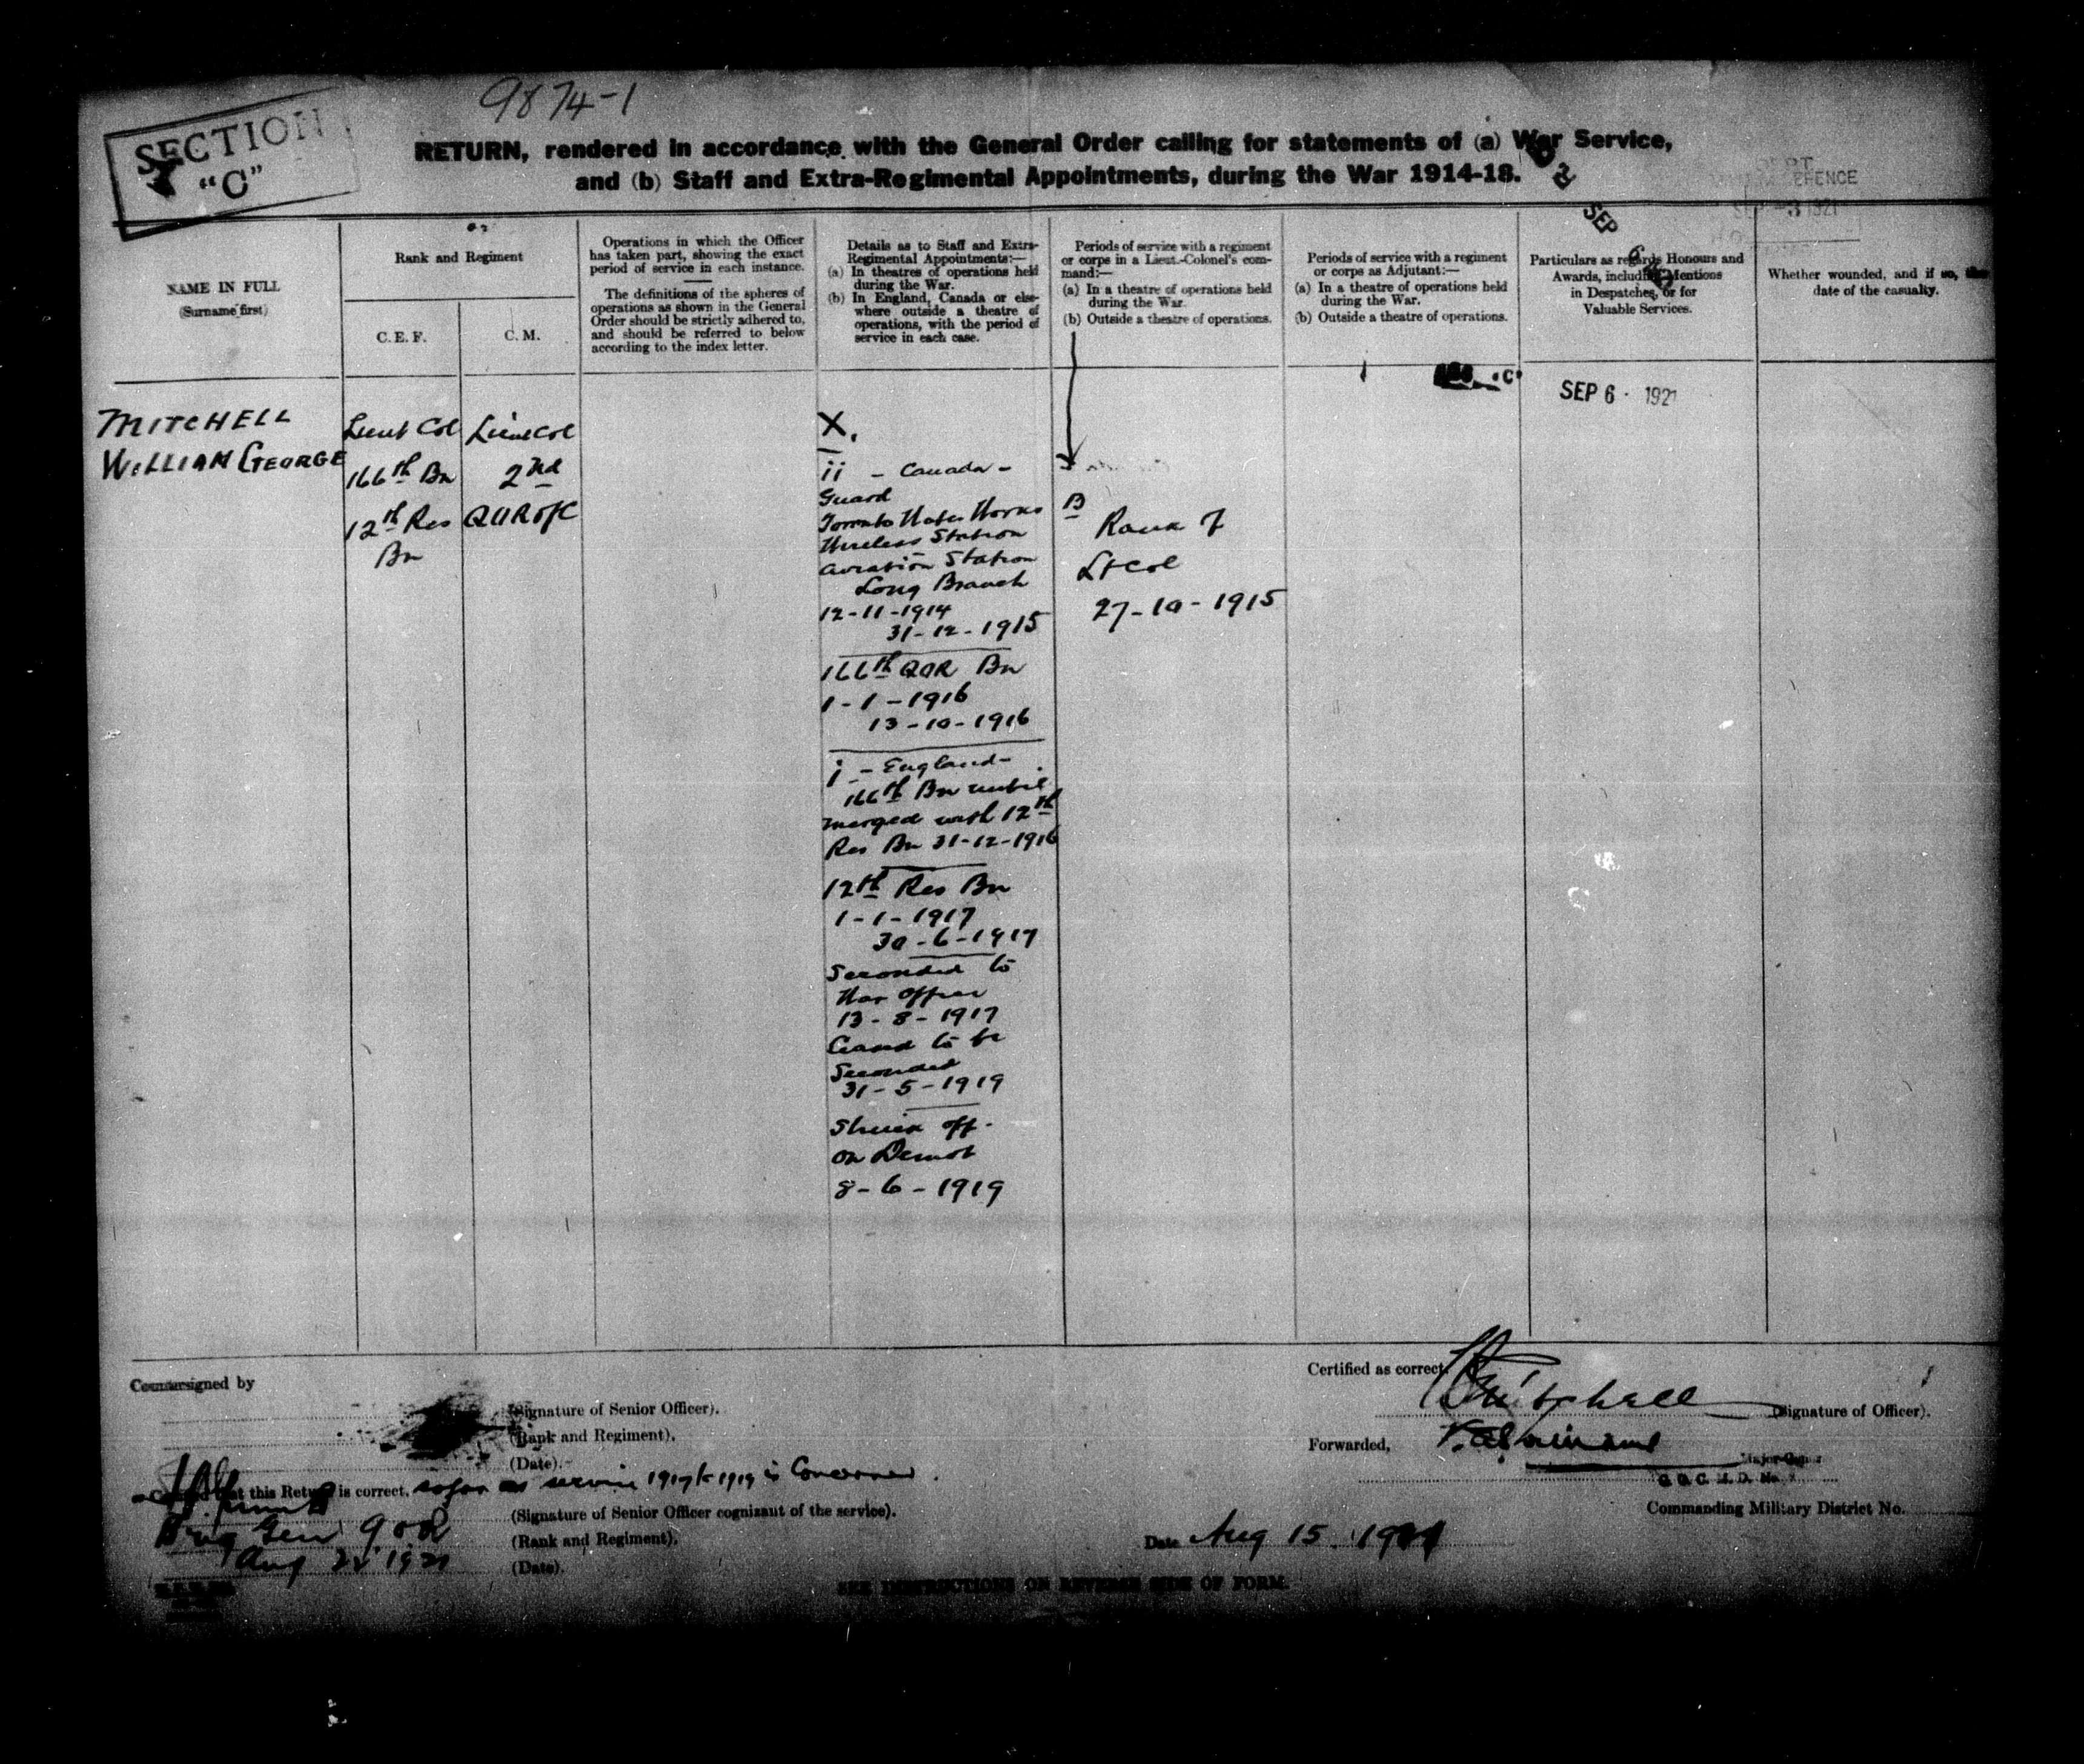 9874-1
SECTION
"C"
RETURN, rendered in accordance with the General Order calling for statements of (a) War Service,
and (b) Staff and Extra-Regimental Appointments, during the War 1914-18.
SEP 3 1921
NAME IN FULL
(Surname first)
Rank and Regiment
C. E. F.
C. M.
Operations in which the Officer
has taken part, showing the exact
period of service in each instance.
The definitions of the spheres of
operations as shown in the General
Order should be strictly adhered to,
and should be referred to below
according to the index letter.
Details as to Staff and Extra-
Regimental Appointments:—
(a) In theatres of operations held
during the War.
(b) In England, Canada or else-
where outside a theatre of
operations, with the period of
service in each case.
Periods of service with a regiment
or corps in a Lieut.-Colonel's com-
mand:—
(a) In a theatre of operations held
during the War.
(b) Outside a theatre of operations.
Periods of service with a regiment
or corps as Adjutant:—
(a) In a theatre of operations held
during the War.
(b) Outside a theatre of operations.
Particulars as regards Honours and
Awards, including Mentions
in Despatches, or for
Valuable Services.
Whether wounded, and if so, the
date of the casualty.
SEP 6 · 1921
MITCHELL
WILLIAM GEORGE
Lieut Col
166th Bn
12th Res
Bn
Lieut Col
2nd
QORofC
X.
ii - Canada -
Guard
Toronto Water Works
Wireless Station
Aviation Station
Long Branch
12-11-1914
31-12-1915
166th QOR Bn
1-1-1916
13-10-1916
i - England -
166th Bn until
merged with 12th
Res Bn 31-12-1916
12th Res Bn
1-1-1917
30-6-1917
Seconded to
War Office
13-8-1917
Ceased to be
Seconded
31-5-1919
Struck off
on Demob
8-6-1919
B
Rank of
Lt Col
27-10-1915
Countersigned by
(Signature of Senior Officer).
(Rank and Regiment).
(Date).
Certified that this Return is correct, so far as service 1917 to 1919 is Concerned.
(Signature of Senior Officer cognizant of the service).
Brig Gen
(Rank and Regiment).
Aug 22 1921
(Date).
Certified as correct,
Mitchell
(Signature of Officer).
Forwarded,
Major-General
G. O. C. M. D. No.
Commanding Military District No.
Date Aug 15 1921
SEE INSTRUCTIONS ON REVERSE SIDE OF FORM.